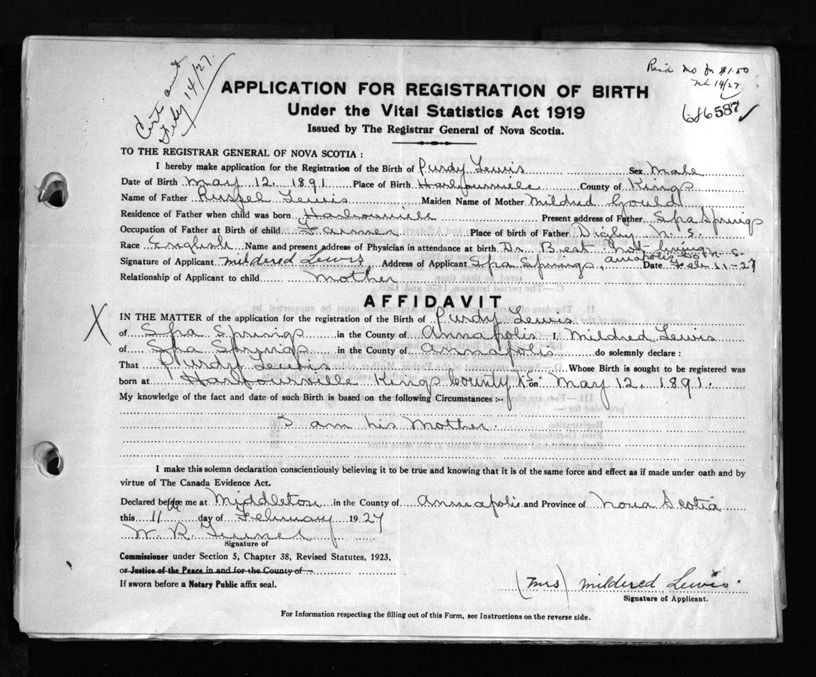 Cert and
Feby 14/27.
Paid No for $1.50
Feb. 14/27
66587
APPLICATION FOR REGISTRATION OF BIRTH
Under the Vital Statistics Act 1919
Issued by The Registrar General of Nova Scotia.
TO THE REGISTRAR GENERAL OF NOVA SCOTIA :
I hereby make application for the Registration of the Birth of Purdy Lewis Sex Male
Date of Birth May 12. 1891 Place of Birth Harbourville County of Kings
Name of Father Russel Lewis Maiden Name of Mother Mildred Gould
Residence of Father when child was born Harbourville Present address of Father Spa Springs
Occupation of Father at Birth of child Farmer Place of birth of Father Digby N. S.
Race English Name and present address of Physician in attendance at birth Dr. Beat not living
Signature of Applicant Mildered Lewis Address of Applicant Spa Springs, Annapolis Co N. S. Date Feb. 11-27
Relationship of Applicant to child Mother
AFFIDAVIT
X IN THE MATTER of the application for the registration of the Birth of Purdy Lewis
of Spa Springs in the County of Annapolis I, Mildred Lewis
of Spa Springs in the County of Annapolis do solemnly declare :
That Purdy Lewis Whose Birth is sought to be registered was
born at Harbourville Kings County on May 12. 1891.
My knowledge of the fact and date of such Birth is based on the following Circumstances :-
I am his Mother.
I make this solemn declaration conscientiously believing it to be true and knowing that it is of the same force and effect as if made under oath and by
virtue of The Canada Evidence Act.
Declared before me at Middleton in the County of Annapolis and Province of Nova Scotia
this 11 day of February 1927
W. R.
Signature of
Commissioner under Section 5, Chapter 38, Revised Statutes, 1923,
or Justice of the Peace in and for the County of
If sworn before a Notary Public affix seal.
(Mrs) Mildered Lewis.
Signature of Applicant.
For Information respecting the filling out of this Form, see Instructions on the reverse side.